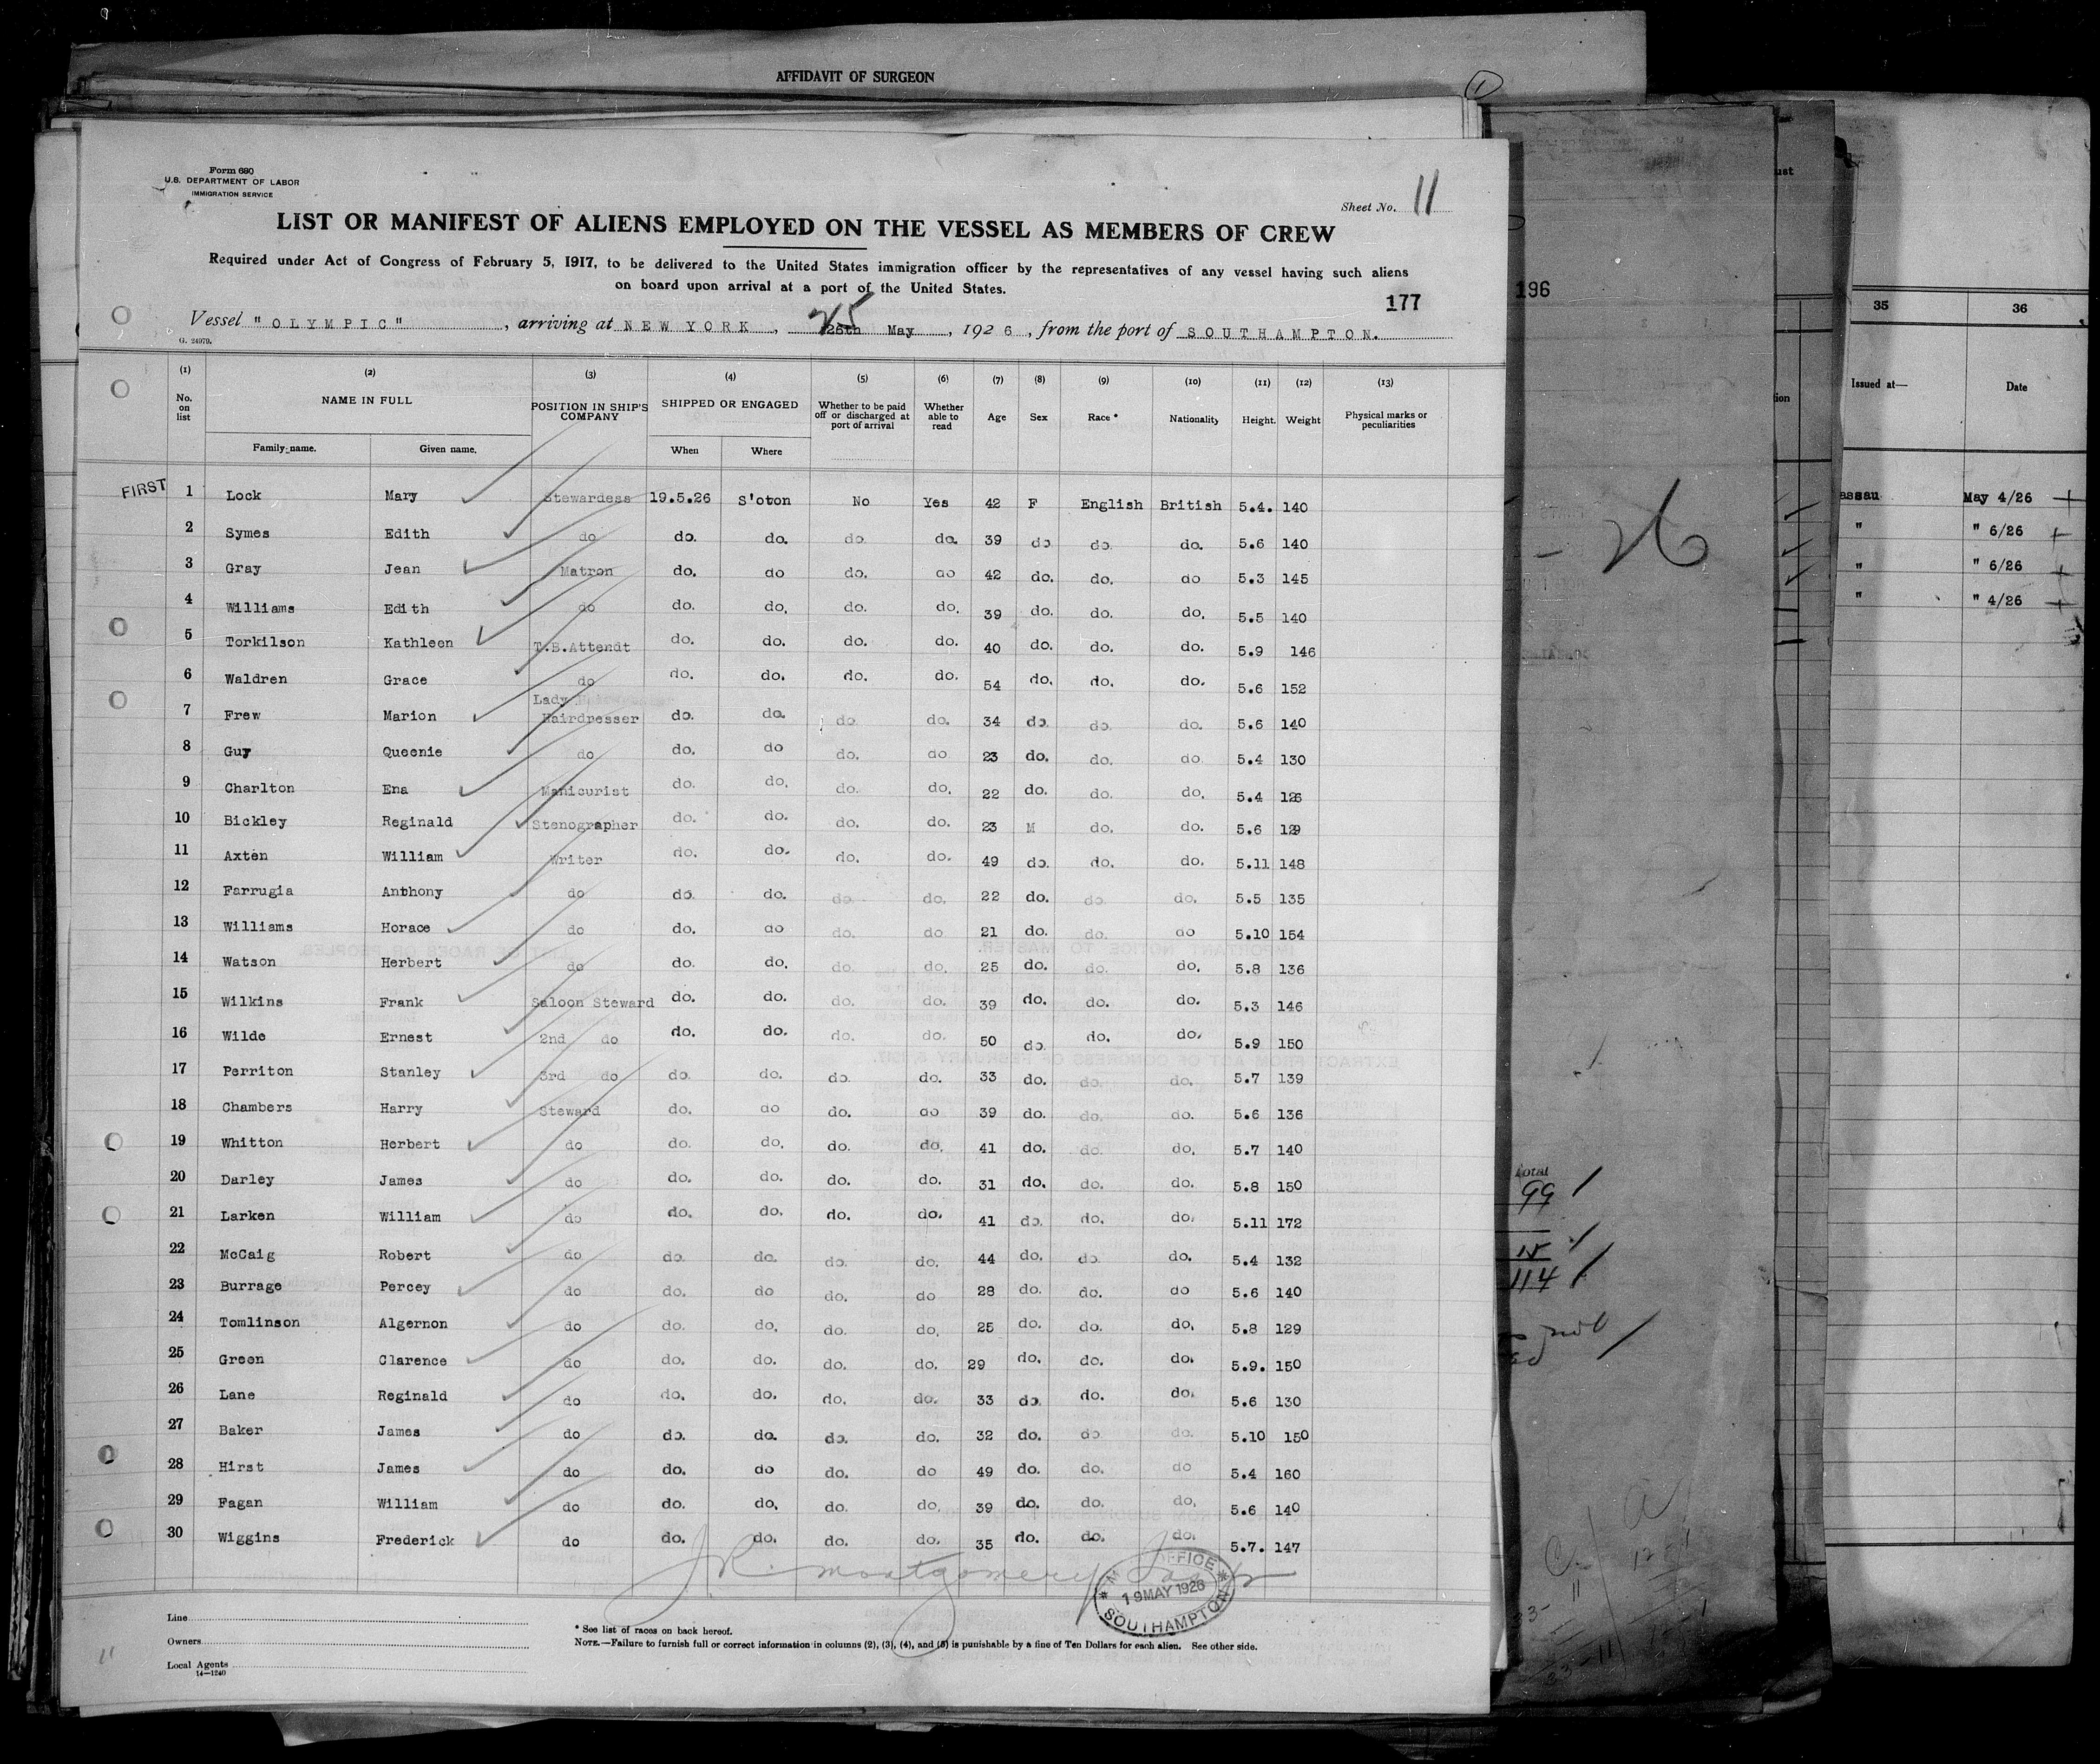 AFFIDAVIT OF SURGEON
Form 680
U.S. DEPARTMENT OF LABOR
IMMIGRATION SERVICE
Sheet No. 11
LIST OR MANIFEST OF ALIENS EMPLOYED ON THE VESSEL AS MEMBERS OF CREW
Required under Act of Congress of February 5, 1917, to be delivered to the United States immigration officer by the representatives of any vessel having such aliens
on board upon arrival at a port of the United States.
177
Vessel "OLYMPIC", arriving at NEW YORK, 25 26th May, 1926, from the port of SOUTHAMPTON.
G. 24979.
(1) (2) (3) (4) (5) (6) (7) (8) (9) (10) (11) (12) (13)
No. on list NAME IN FULL POSITION IN SHIP'S COMPANY SHIPPED OR ENGAGED Whether to be paid off or discharged at port of arrival Whether able to read Age Sex Race * Nationality Height. Weight Physical marks or peculiarities
Family name. Given name. When Where
FIRST 1 Lock Mary Stewardess 19.5.26 S'oton No Yes 42 F English British 5.4. 140
2 Symes Edith do do. do. do. do. 39 do do. do. 5.6 140
3 Gray Jean Matron do. do do. do 42 do. do. do 5.3 145
4 Williams Edith do do. do. do. do. 39 do. do. do. 5.5 140
5 Torkilson Kathleen T.B.Attendt do. do. do. do. 40 do. do. do. 5.9 146
6 Waldren Grace do do. do. do. do. 54 do. do. do. 5.6 152
7 Frew Marion Lady Hairdresser do. do. do do. 34 do. do. do. 5.6 140
8 Guy Queenie do do. do do. do 23 do. do. do 5.4 130
9 Charlton Ena Manicurist do. do. do. do. 22 do. do. do. 5.4 126
10 Bickley Reginald Stenographer do. do. do. do. 23 M do. do. 5.6 129
11 Axten William Writer do. do. do. do. 49 do. do. do. 5.11 148
12 Farrugia Anthony do do. do. do. do. 22 do. do. do. 5.5 135
13 Williams Horace do do. do do. do 21 do. do. do 5.10 154
14 Watson Herbert do do. do. do. do. 25 do. do. do. 5.8 136
15 Wilkins Frank Saloon Steward do. do. do. do. 39 do. do. do. 5.3 146
16 Wilde Ernest 2nd do do. do. do. do. 50 do. do. do. 5.9 150
17 Perriton Stanley 3rd do do. do. do. do. 33 do. do. do. 5.7 139
18 Chambers Harry Steward do. do do. do 39 do. do. do. 5.6 136
19 Whitton Herbert do do. do. do. do. 41 do. do. do. 5.7 140
20 Darley James do do. do. do. do. 31 do. do. do. 5.8 150
21 Larken William do do. do. do. do. 41 do. do. do. 5.11 172
22 McCaig Robert do do. do. do. do. 44 do. do. do. 5.4 132
23 Burrage Percey do do. do do. do 28 do. do. do 5.6 140
24 Tomlinson Algernon do do. do. do. do. 25 do. do. do. 5.8 129
25 Green Clarence do do. do. do. do. 29 do. do. do. 5.9. 150
26 Lane Reginald do do. do. do. do. 33 do. do. do. 5.6 130
27 Baker James do do. do. do. do. 32 do. do do. 5.10 150
28 Hirst James do do. do do. do 49 do. do. do 5.4 160
29 Fagan William do do. do. do. do. 39 do. do. do. 5.6 140
30 Wiggins Frederick do do. do. do. do. 35 do. do. do. 5.7. 147
J R. Montgomery
OFFICE
19 MAY 1926
SOUTHAMPTON
Line
Owners
Local Agents
14—1240
* See list of races on back hereof.
NOTE.—Failure to furnish full or correct information in columns (2), (3), (4), and (5) is punishable by a fine of Ten Dollars for each alien. See other side.
11
196
26
total
99
15
114
35 36
Issued at— Date
assau May 4/26
" " 6/26
" " 6/26
" " 4/26